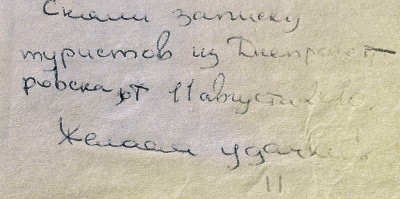 Сняли записку
туристов из Днепропет
ровска от 11 августа
Желаем удачи!
11